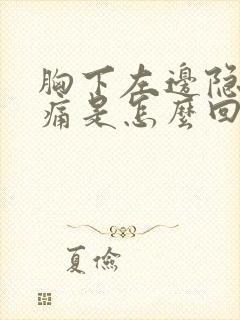 胸下左邊隐
痛是怎麼回
夏俭